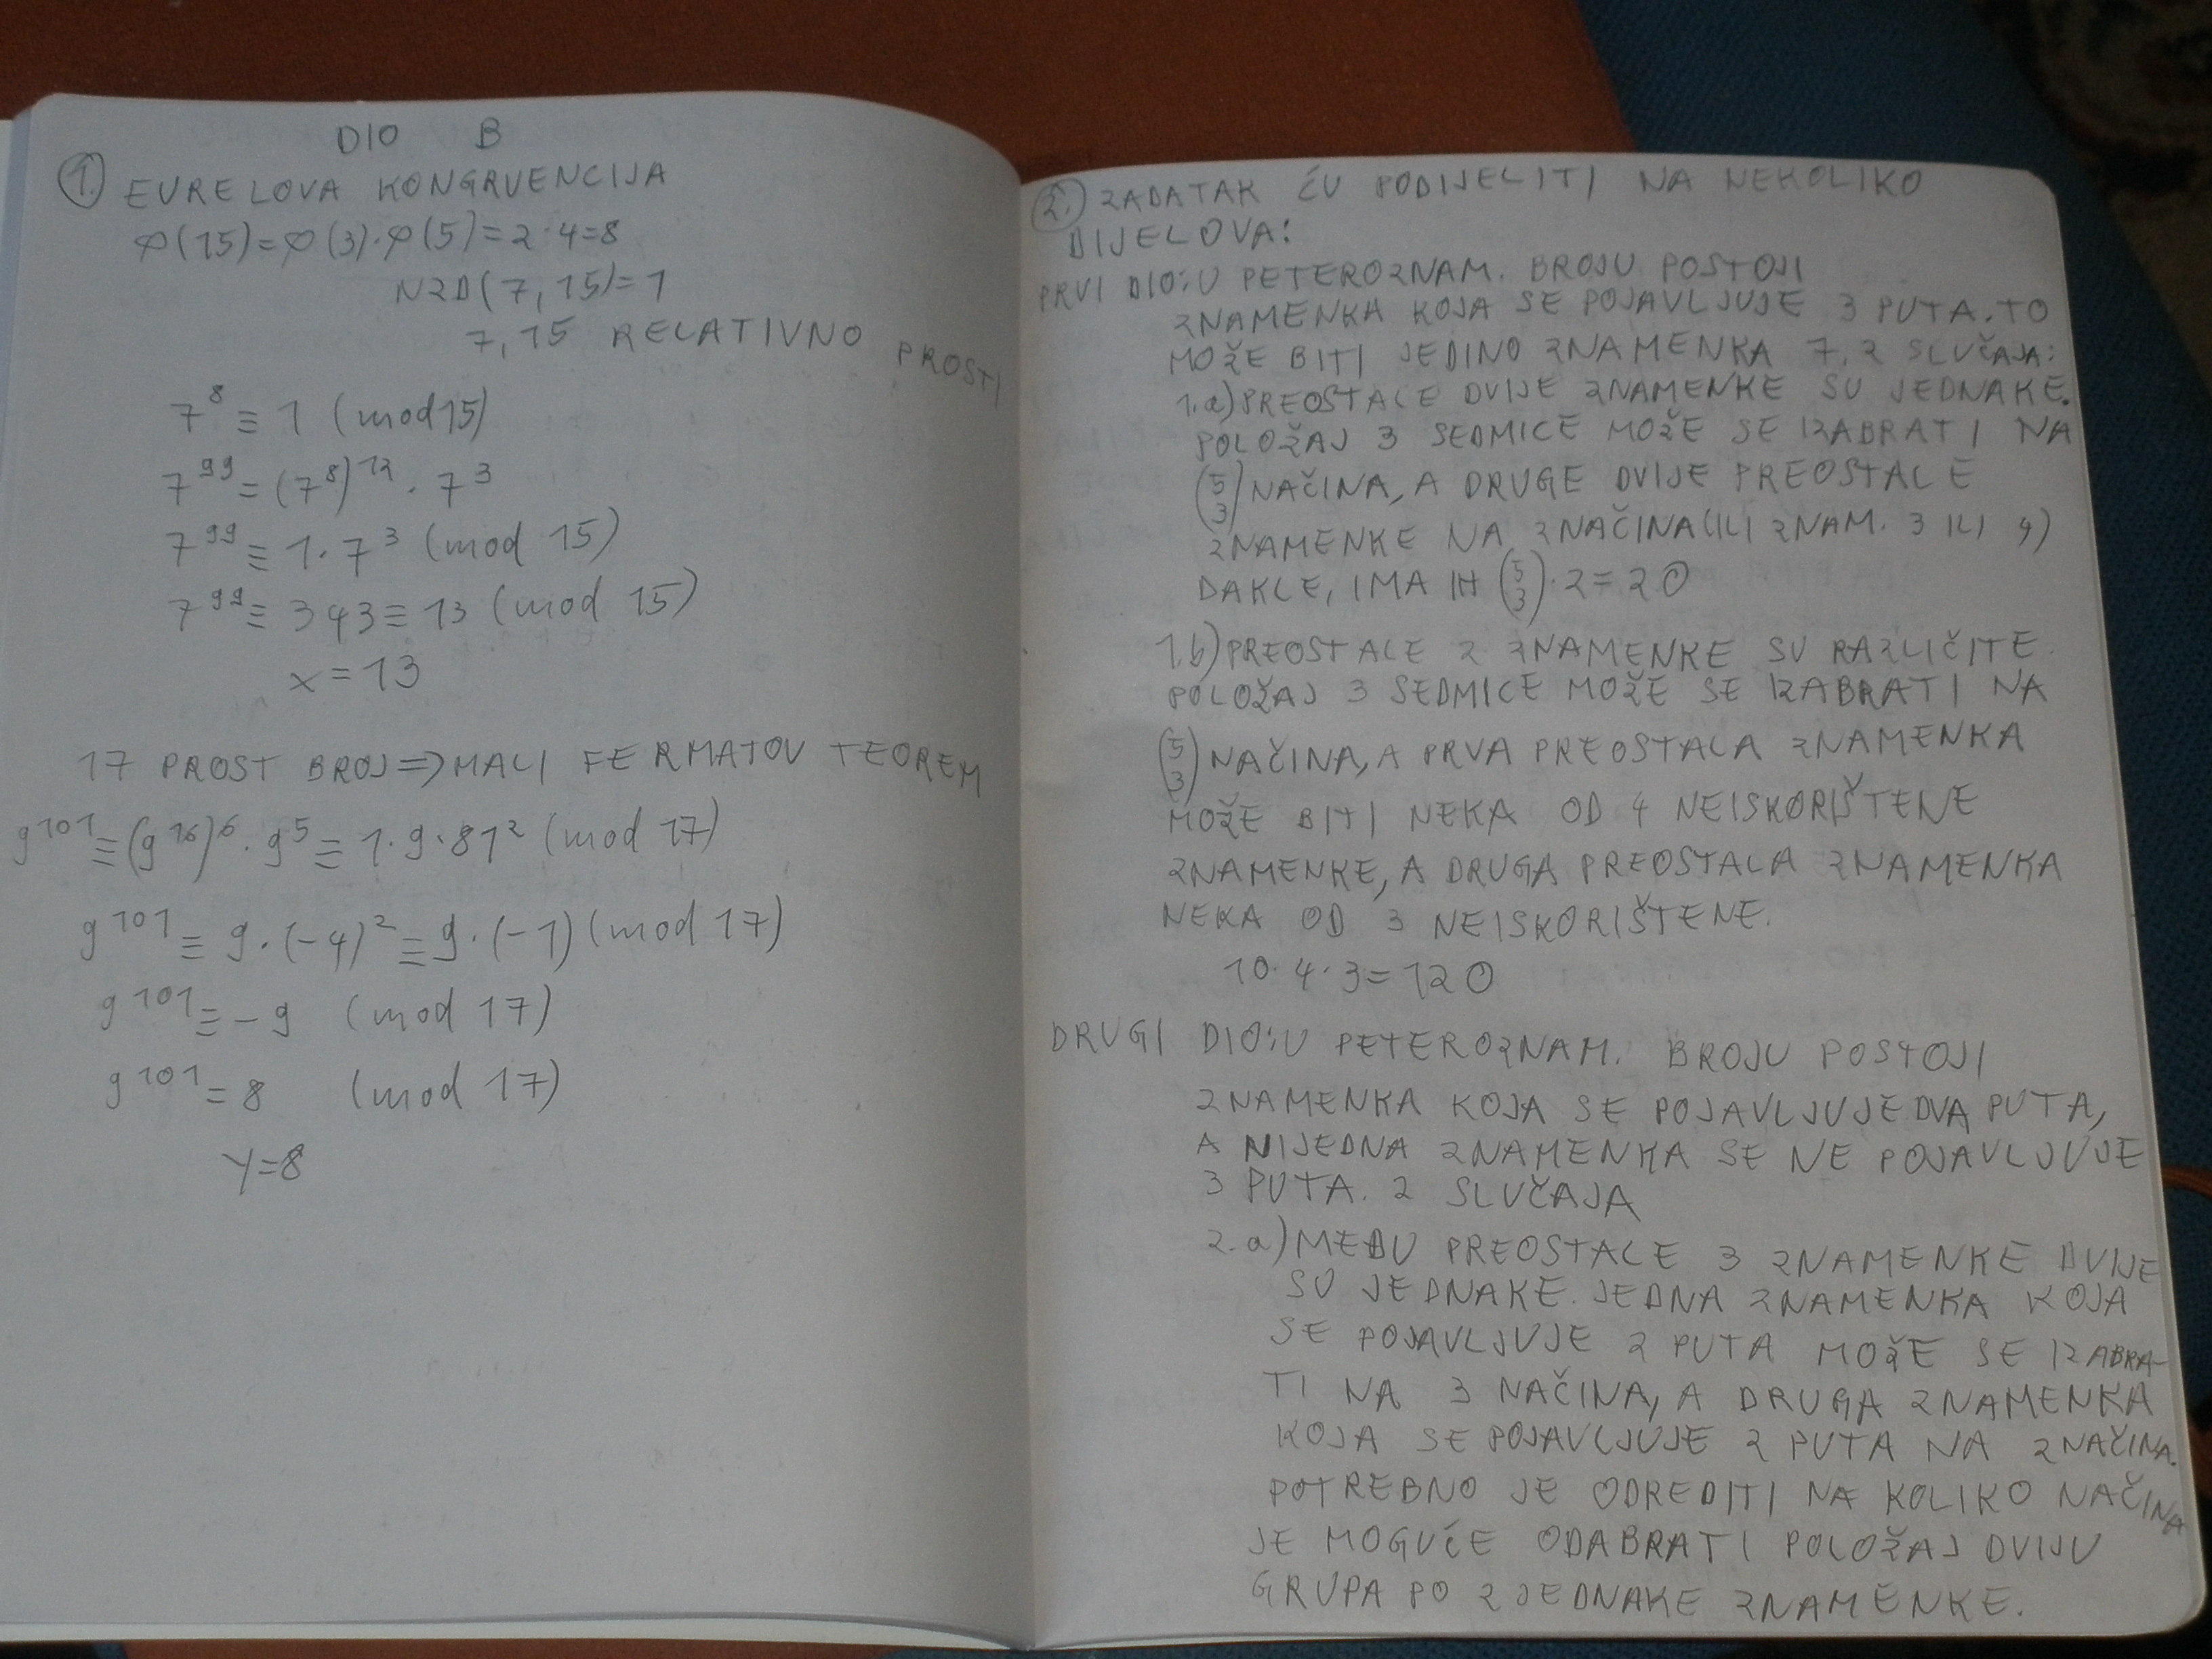 DIO B
1. EURELOVA KONGRUENCIJA
φ(15)=φ(3)·φ(5)=2·4=8
NZD(7,15)=1
7,15 RELATIVNO PROSTI
7⁸≡1 (mod 15)
7⁹⁹=(7⁸)¹²·7³
7⁹⁹≡1·7³ (mod 15)
7⁹⁹≡343≡13 (mod 15)
x=13
17 PROST BROJ⇒MALI FERMATOV TEOREM
9¹⁰¹≡(9¹⁶)⁶·9⁵≡1·9·81² (mod 17)
9¹⁰¹≡9·(-4)²≡9·(-1) (mod 17)
9¹⁰¹≡-9 (mod 17)
9¹⁰¹=8 (mod 17)
Y=8
2. ZADATAK ĆU PODIJELITI NA NEKOLIKO
DIJELOVA:
PRVI DIO: U PETEROZNAM. BROJU POSTOJI
ZNAMENKA KOJA SE POJAVLJUJE 3 PUTA. TO
MOŽE BITI JEDINO ZNAMENKA 7. 2 SLUČAJA:
1.a) PREOSTALE DVIJE ZNAMENKE SU JEDNAKE.
POLOŽAJ 3 SEDMICE MOŽE SE IZABRATI NA
(5 3) NAČINA, A DRUGE DVIJE PREOSTALE
ZNAMENKE NA 2 NAČINA (ILI ZNAM. 3 ILI 4)
DAKLE, IMA IH (5 3)·2=20
1.b) PREOSTALE 2 ZNAMENKE SU RAZLIČITE.
POLOŽAJ 3 SEDMICE MOŽE SE IZABRATI NA
(5 3) NAČINA, A PRVA PREOSTALA ZNAMENKA
MOŽE BITI NEKA OD 4 NEISKORIŠTENE
ZNAMENKE, A DRUGA PREOSTALA ZNAMENKA
NEKA OD 3 NEISKORIŠTENE.
10·4·3=120
DRUGI DIO: U PETEROZNAM. BROJU POSTOJI
ZNAMENKA KOJA SE POJAVLJUJE DVA PUTA,
A NIJEDNA ZNAMENKA SE NE POJAVLJUJE
3 PUTA. 2 SLUČAJA
2.a) MEĐU PREOSTALE 3 ZNAMENKE DVIJE
SU JEDNAKE. JEDNA ZNAMENKA KOJA
SE POJAVLJUJE 2 PUTA MOŽE SE IZABRA-
TI NA 3 NAČINA, A DRUGA ZNAMENKA
KOJA SE POJAVLJUJE 2 PUTA NA 2 NAČINA.
POTREBNO JE ODREDITI NA KOLIKO NAČINA
JE MOGUĆE ODABRATI POLOŽAJ DVIJU
GRUPA PO 2 JEDNAKE ZNAMENKE.